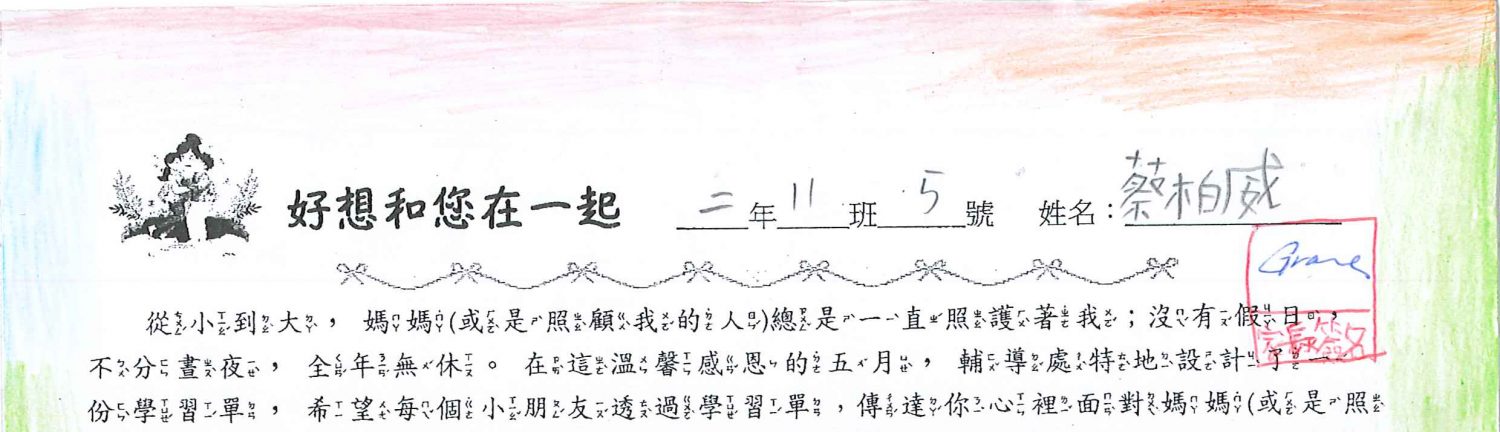 好想和您在一起 二年11班5號 姓名：蔡柏威
Grace
家長簽名
從小到大，媽媽(或是照顧我的人)總是一直照護著我；沒有假日，
不分晝夜，全年無休。在這溫馨感恩的五月，輔導處特地設計了一
份學習單，希望每個小朋友透過學習單，傳達你心裡面對媽媽(或是照